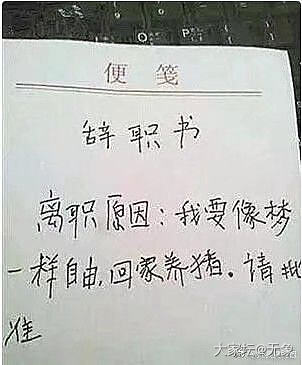 便 笺
辞职书
离职原因：我要像梦
一样自由，回家养猪。请批
准
大家坛@无象